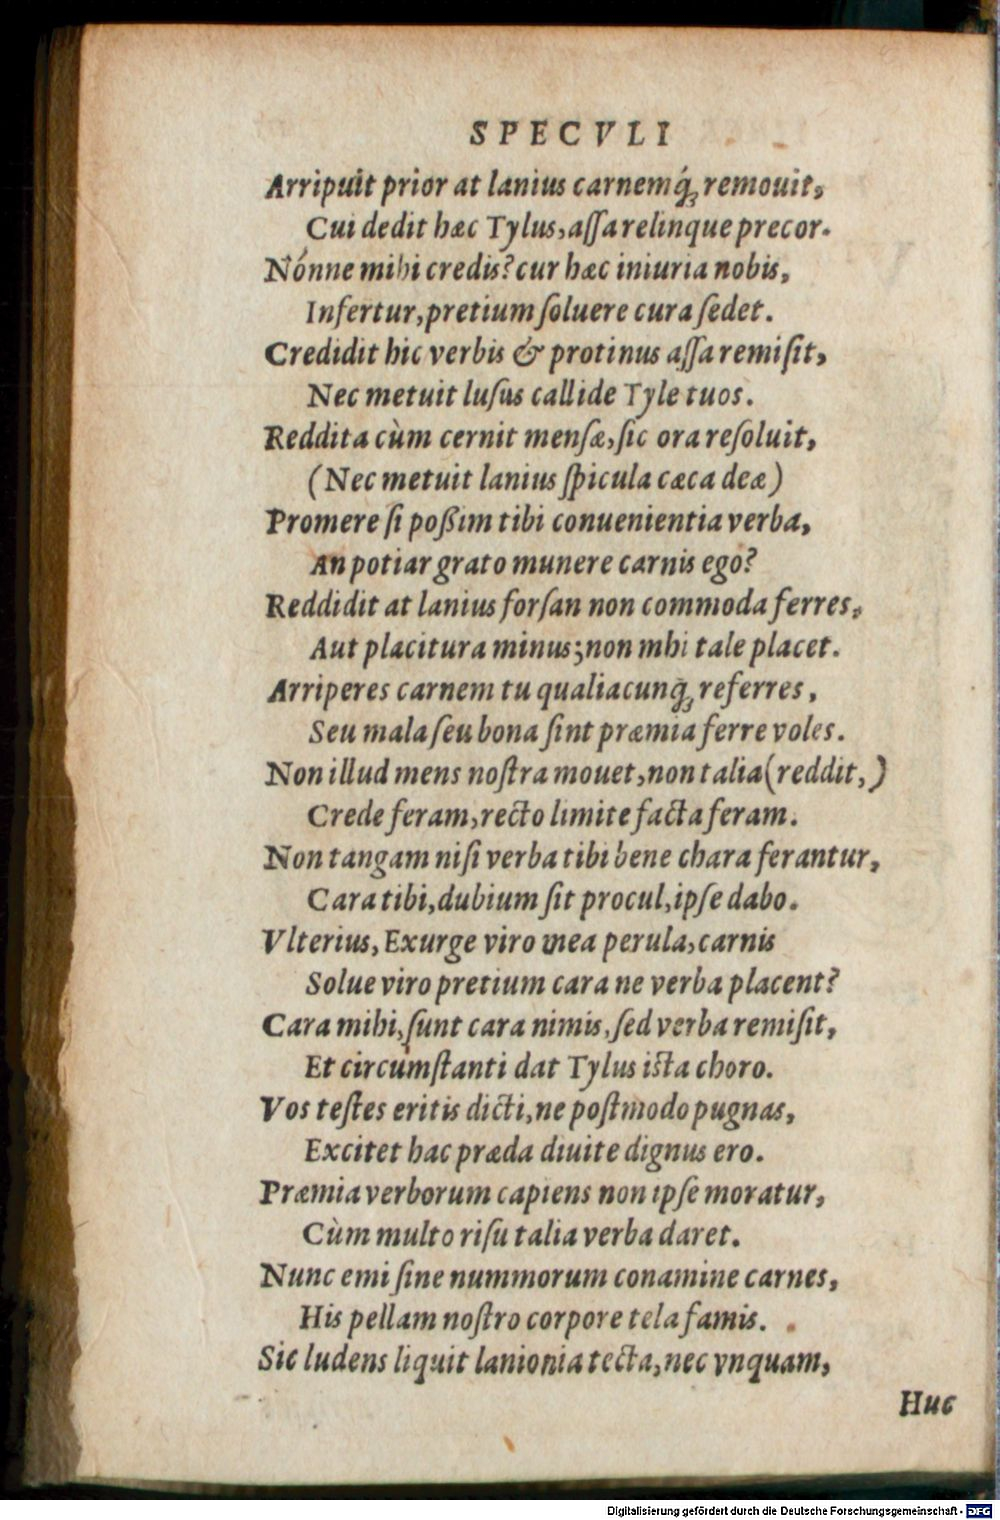 SPECVLI
Arripuit prior at lanius carnemq́ꝫ remouit,
Cui dedit hæc Tylus, aſſa relinque precor.
Nónne mihi credis? cur hæc iniuria nobis,
Infertur, pretium ſoluere cura ſedet.
Credidit hic verbis & protinus aſſa remiſit,
Nec metuit luſus callide Tyle tuos.
Reddita cùm cernit menſæ, ſic ora reſoluit,
(Nec metuit lanius ſpicula cæca deæ)
Promere ſi poßim tibi conuenientia verba,
An potiar grato munere carnis ego?
Reddidit at lanius forſan non commoda ferres,
Aut placitura minus; non mhi tale placet.
Arriperes carnem tu qualiacunq́ꝫ referres,
Seu mala ſeu bona ſint præmia ferre voles.
Non illud mens noſtra mouet, non talia (reddit,)
Crede feram, recto limite facta feram.
Non tangam niſi verba tibi bene chara ferantur,
Cara tibi, dubium ſit procul, ipſe dabo.
Vlterius, Exurge viro mea perula, carnis
Solue viro pretium cara ne verba placent?
Cara mihi, ſunt cara nimis, ſed verba remiſit,
Et circumſtanti dat Tylus iſta choro.
Vos teſtes eritis dicti, ne poſtmodo pugnas,
Excitet hac præda diuite dignus ero.
Præmia verborum capiens non ipſe moratur,
Cùm multo riſu talia verba daret.
Nunc emi ſine nummorum conamine carnes,
His pellam noſtro corpore tela famis.
Sic ludens liquit lanionia tecta, nec vnquam,
Huc
Digitalisierung gefördert durch die Deutsche Forschungsgemeinschaft - DFG